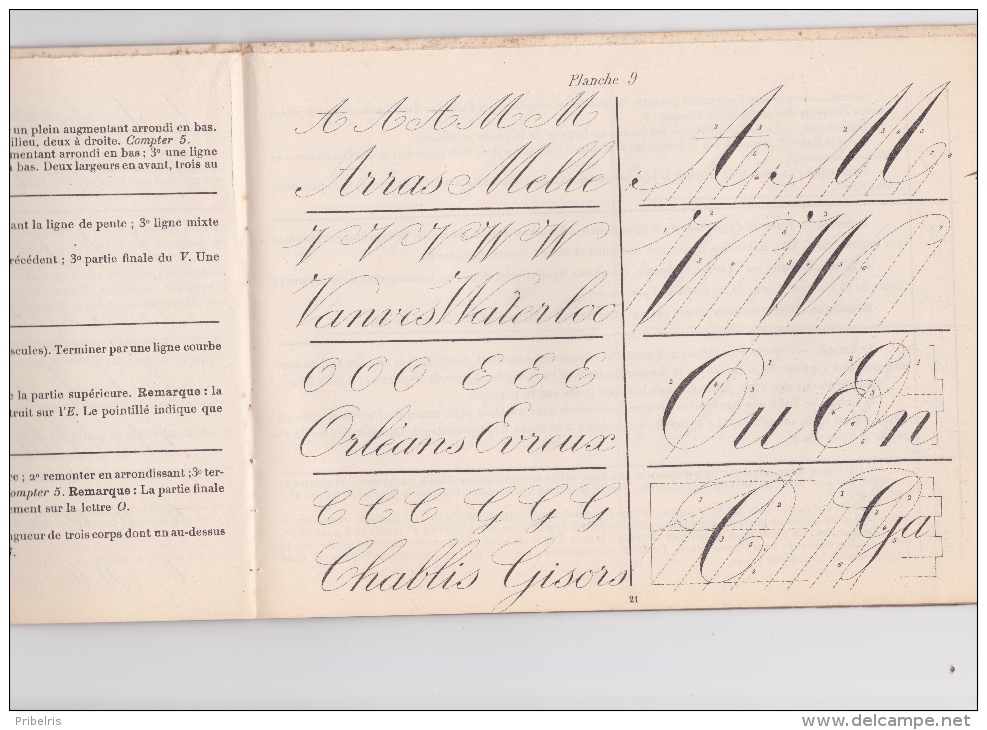 un plein augmentant arrondi en bas.
ilieu, deux à droite. Compter 5.
mentant arrondi en bas ; 3º une ligne
bas. Deux largeurs en avant, trois au
ant la ligne de pente ; 3º ligne mixte
récédent ; 3º partie finale du V. Une
scules). Terminer par une ligne courbe
e la partie supérieure. Remarque : la
truit sur l'E. Le pointillé indique que
re ; 2º remonter en arrondissant ; 3º ter-
ompter 5. Remarque : La partie finale
ement sur la lettre O.
ngueur de trois corps dont un au-dessus
Planche 9
A A A M M
Arras Melle
V V V W W
Vanves Waterloo
O O O E E E
Orléans Evreux
C C C G G G
Chablis Gisors
A M
V W
Ou En
C Ga
21
Pribelris
www.delcampe.net